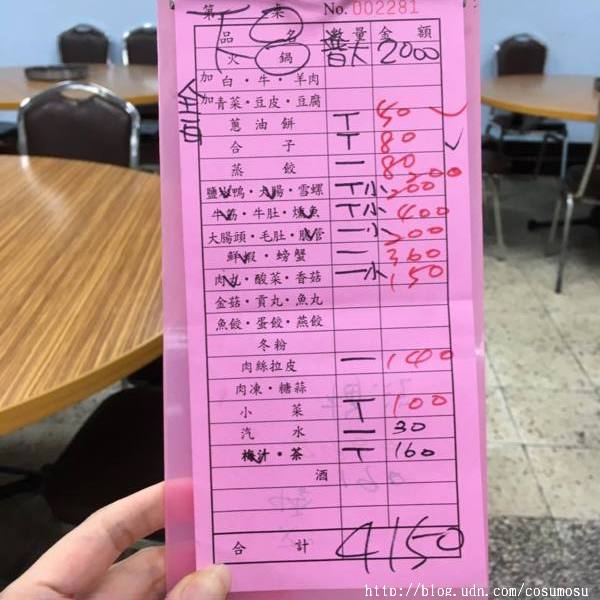 第 桌 No. 002281
品 名 數量 金 額
火 鍋 普大 2000
加白·牛·羊肉
加青菜·豆皮·豆腐
蔥油餅 T 50
合 子 T 80
蒸 餃 一 80
200
鹽水鴨·大腸·雪螺 T小 200
牛筋·牛肚·燻魚 T小 400
大腸頭·毛肚·脆管 一小 200
鮮蝦·螃蟹 一 360
肉丸·酸菜·香菇 一小 150
金菇·貢丸·魚丸
魚餃·蛋餃·燕餃
冬粉
肉絲拉皮 一 140
肉凍·糖蒜
小 菜 T 100
汽 水 一 30
梅汁·茶 T 160
酒
合 計 4150
http://blog.udn.com/cosumosu